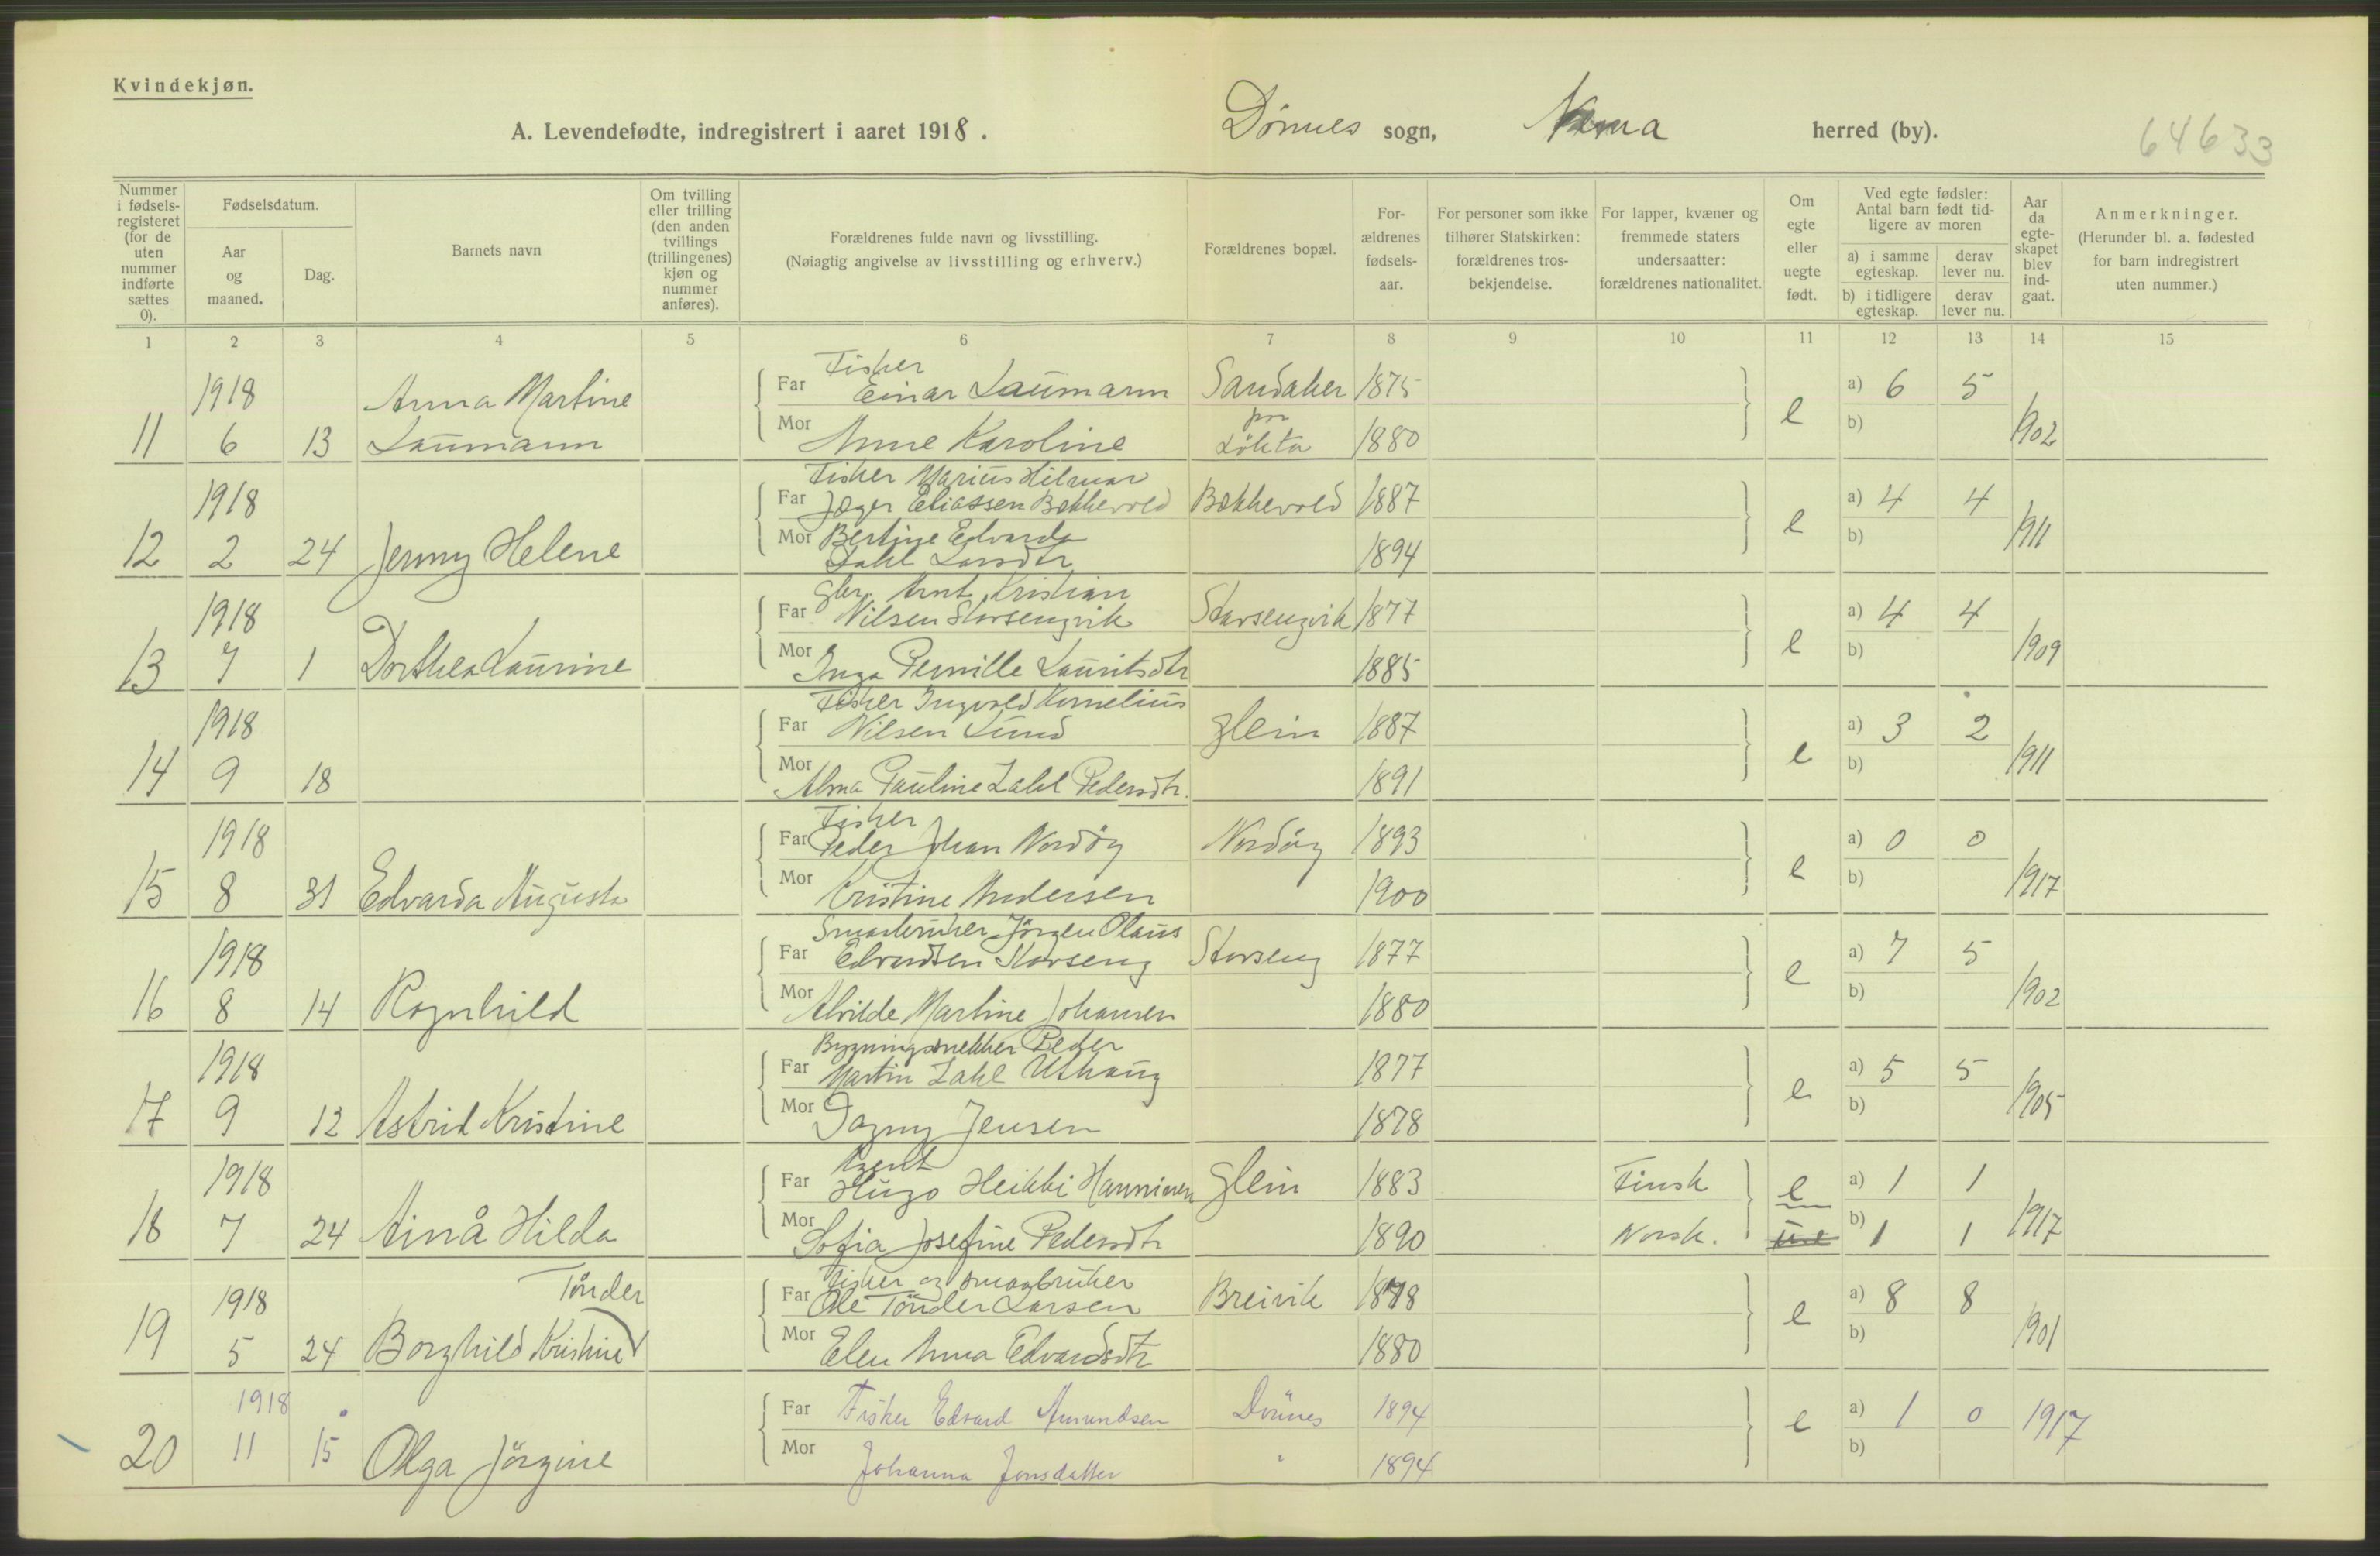 Kvindekjøn.
A. Levendefødte, indregistrert i aaret 1918. Dønnes sogn, herred (by). 64633
Nummer i fødselsregisteret (for de uten nummer indførte sættes 0).
Fødselsdatum.
Aar og maaned.
Dag.
Barnets navn
Om tvilling eller trilling (den anden tvillings (trillingenes) kjøn og nummer anføres).
Forældrenes fulde navn og livsstilling.
(Nøiagtig angivelse av livsstilling og erhverv.)
Forældrenes bopæl.
For-ældrenes fødsels-aar.
For personer som ikke tilhører Statskirken: forældrenes tros-bekjendelse.
For lapper, kvæner og fremmede staters undersaatter: forældrenes nationalitet.
Om egte eller uegte født.
Ved egte fødsler: Antal barn født tid-ligere av moren
a) i samme egteskap. derav lever nu.
b) i tidligere egteskap. derav lever nu.
Aar da egte-skapet blev ind-gaat.
Anmerkninger.
(Herunder bl. a. fødested for barn indregistrert uten nummer.)
1 2 3 4 5 6 7 8 9 10 11 12 13 14 15
Fisker
1918 Anna Martine Far Einar Laumann Sandaker 1875 e a) 6 5
11 6 13 Laumann Mor Anne Karoline pr Løkta 1880 b) 1902
Fisker Marius Hilmar
1918 Far Jæger Eliassen Bækkevold Bækkevold 1887 e a) 4 4
Mor Bertine Edvarda b) 1911
12 2 24 Jenny Helene Zahl Larsdtr 1894
Gbr. Arnt Kristian
1918 Far Nilsen Storsengvik Storsengvik 1877 e a) 4 4
13 7 1 Dorthea Laurine Mor Inga Pernille Lauritsdtr 1885 b) 1909
Fisker Ingvald Kornelius
1918 Far Nilsen Lund Glein 1887 e a) 3 2
14 9 18 Mor Alma Pauline Zahl Pedersdtr. 1891 b) 1911
Fisker
1918 Far Peder Johan Nordøy Nordøy 1893 e a) 0 0
15 8 31 Edvarda Augusta Mor Kristine Andersen 1900 b) 1917
Smaabruker Jörgen Olaus
1918 Far Edvardsen Storseng Storseng 1877 e a) 7 5
16 8 14 Ragnhild Mor Alvilde Martine Johansen 1880 b) 1902
Bygningsnekker Peder
1918 Far Martin Zahl Uthaug 1877 e a) 5 5
17 9 12 Astrid Kristine Mor Dagny Jensen 1878 b) 1905
Agent
1918 Far Hugo Heikki Hanninen Glein 1883 Finsk e a) 1 1
18 7 24 Ainå Hilda Mor Sofia Josefine Pedersdtr 1890 Norsk. b) 1 1 1917
Tönder Fisker og smaabruker
1918 Far Ole Tönder Larsen Breivik 1878 e a) 8 8
19 5 24 Borghild Kristine Mor Elen Anna Edvardsdtr 1880 b) 1901
1918 Far Fisker Edvard Amundsen Dönnes 1894 e a) 1 0 1917
20 11 15 Olga Jörgine Mor Johanna Jonsdatter " 1894 b)